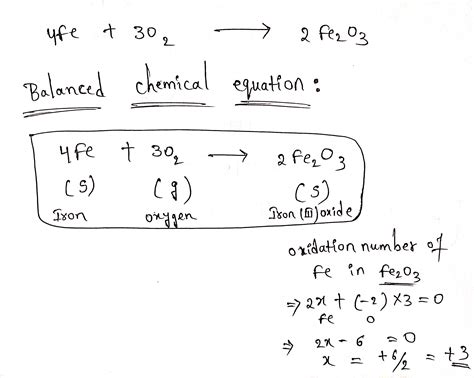 4Fe + 3O₂ → 2 Fe₂O₃
Balanced chemical equation :
4Fe + 3O₂ → 2 Fe₂O₃
(s) (g) (s)
Iron oxygen Iron (III) oxide
oxidation number of
Fe in Fe₂O₃
⇒ 2x + (-2) × 3 = 0
Fe O
⇒ 2x - 6 = 0
x = +6/2 = +3